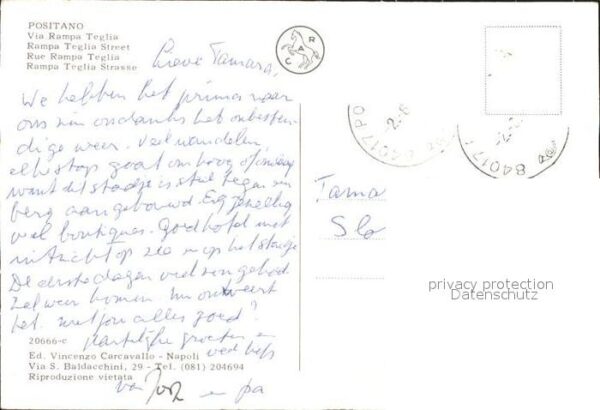 POSITANO
Via Rampa Teglia
Rampa Teglia Street
Rue Rampa Teglia
Rampa Teglia Strasse
C A R
Lieve Tamara,
We hebben het prima naar
ons zin ondanks het onbesten-
dige weer. Veel wandelen,
elke stap gaat omhoog of omlaag
want dit stadje is steil tegen een
berg aangebouwd. Erg gezellig
veel boutiques. Goed hotel met
uitzicht op zee en op het stadje
De eerste dagen veel zon gehad
zal weer komen. Nu onweert
het. Met jou alles goed?
hartelijke groeten en
veel liefs
van en pa
20666-c
Ed. Vincenzo Carcavallo - Napoli
Via S. Baldacchini, 29 - Tel. (081) 204694
Riproduzione vietata
84017 PO
84017
Tama
Slo
privacy protection
Datenschutz